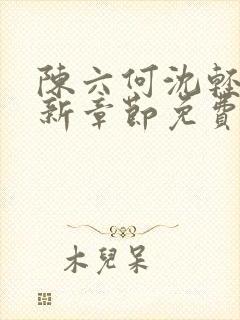 陳六何沈輕
新章節免費
木兒呆